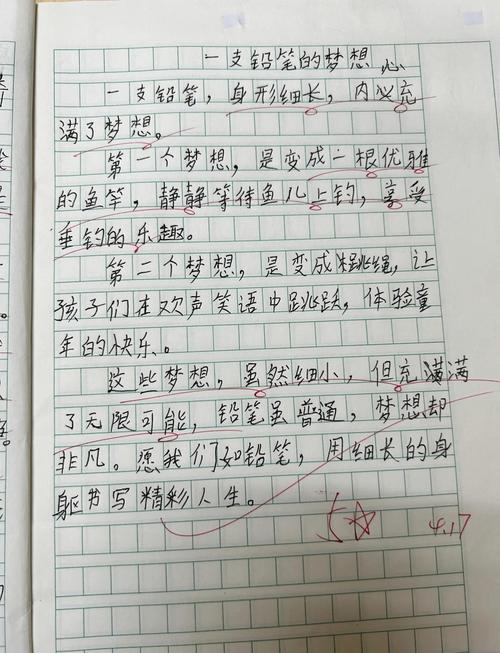 一支铅笔的梦想
心
一支铅笔，身形细长，内心充
满了梦想。
第一个梦想，是变成一根优雅
的鱼竿，静静等待鱼儿上钓，享受
垂钓的乐趣。
第二个梦想，是变成跳绳，让
孩子们在欢声笑语中跳跃，体验童
年的快乐。
这些梦想，虽然细小，但充满满
了无限可能，铅笔虽普通，梦想却
非凡。愿我们如铅笔，用细长的身
躯书写精彩人生。
5☆
4.17